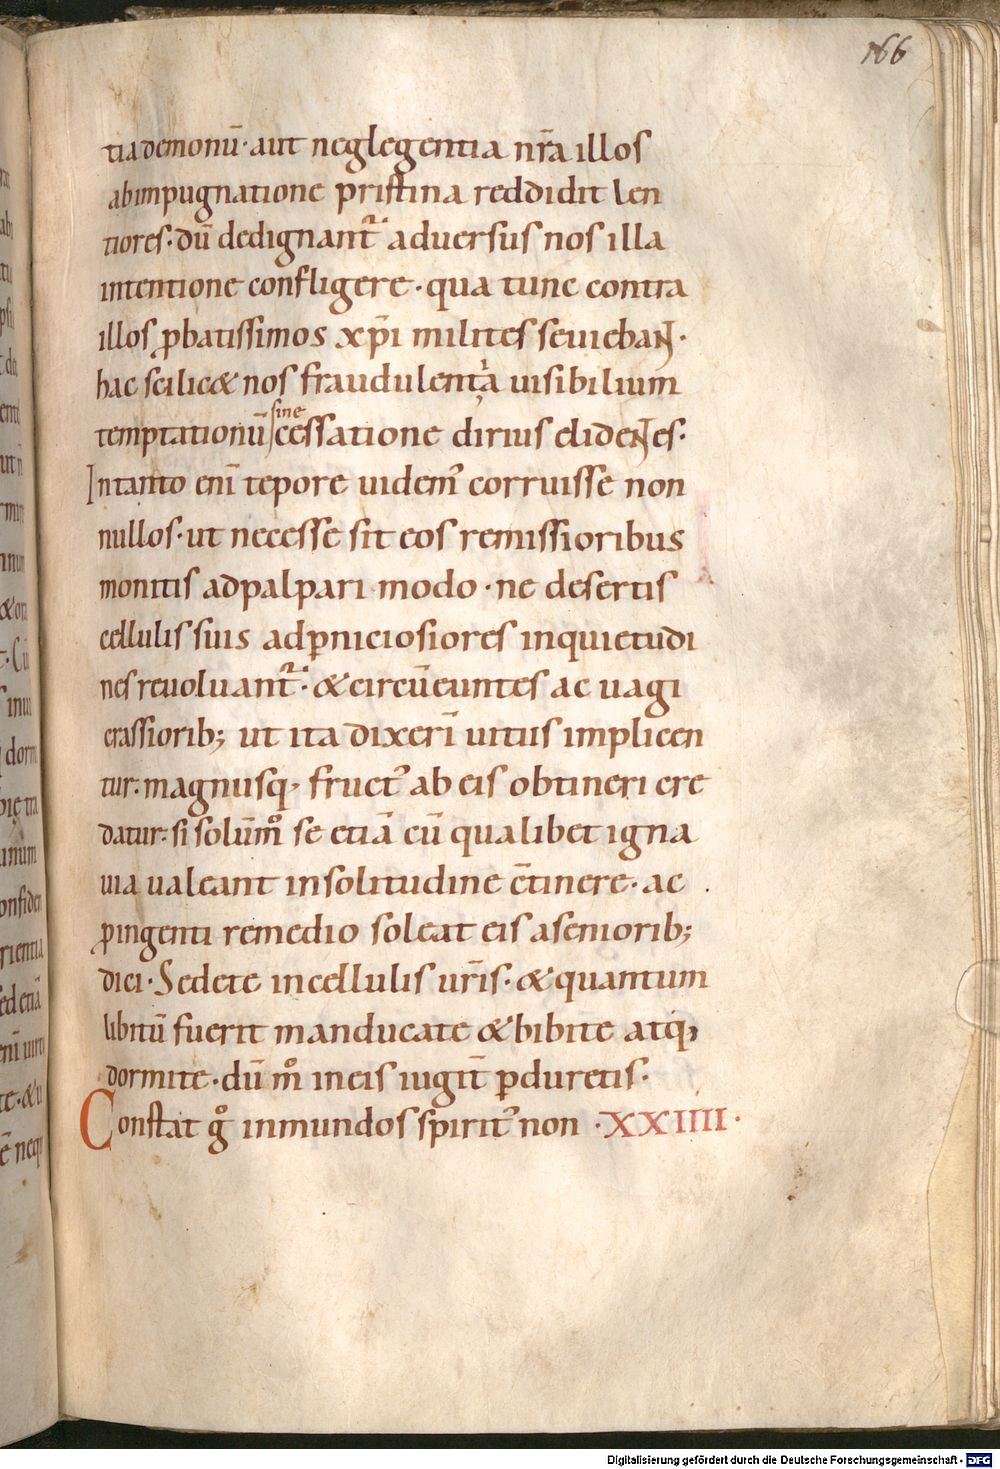 166
tia demonū· aut neglegentia nr̄a illos
ab impugnatione pristina reddidit len
tiores· dū dedignant᷑ aduersus nos illa
intentione confligere· qua tunc contra
illos ꝓbatissimos xp̄i milites seuiebant·
hac scilic& nos fraudulenta uisibilium
temptationū sine cessatione dirius elidentes·
Intanto eni̅ tepore uidem᾿ corruisse non
nullos· ut necesse sit eos remissioribus
monitis adpalpari modo· ne desertis
cellulis suis adꝑniciosiores inquietudi
nes reuoluant᷑· & circū euntes ac uagi
crassiorib; ut ita dixeri̅ uitiis implicen
tur· magnusq, fruct᾿ ab eis obtineri cre
datur· si solūm̊ se etiā cū qualibet igna
uia ualeant insolitudine c̄tinere· ac
ꝓ ingenti remedio soleat eis aseniorib;
dici· Sedete incellulis ur̄is· & quantum
libitū fuerit manducate & bibite atq,
dormite· dū m̊ ineis iugit̅ ꝑduretis·
Constat g̊ inmundos spirit᾿ non ·XXIIII·
Digitalisierung gefördert durch die Deutsche Forschungsgemeinschaft - DFG